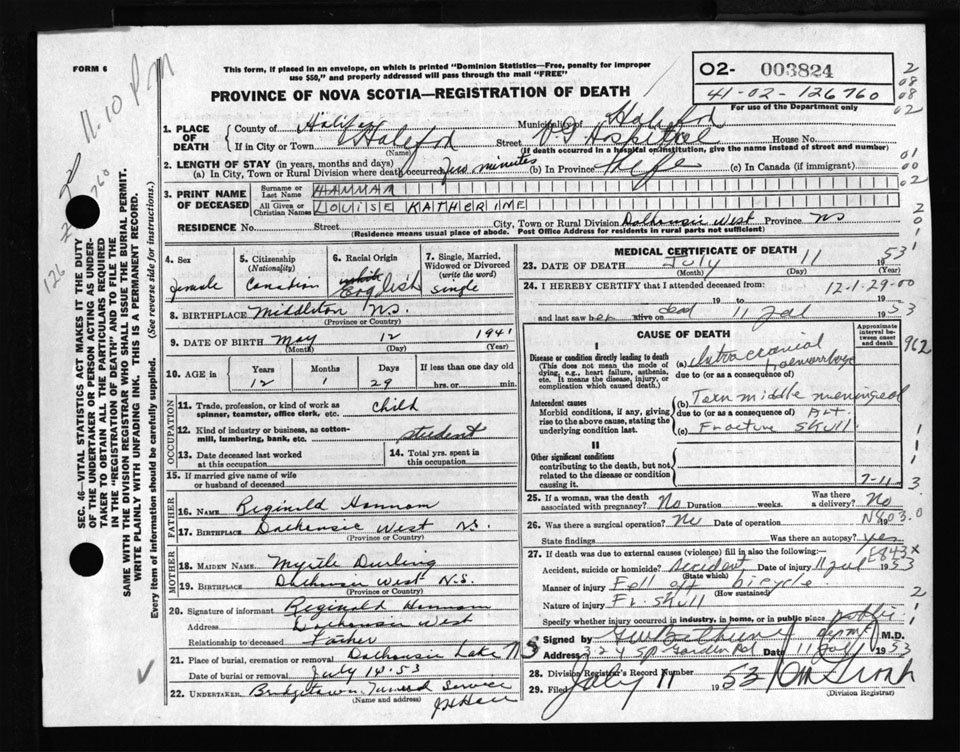 FORM 6
This form, if placed in an envelope, on which is printed "Dominion Statistics—Free, penalty for improper
use $50," and properly addressed will pass through the mail "FREE"
PROVINCE OF NOVA SCOTIA—REGISTRATION OF DEATH
02- 003824
41-02-126760
For use of the Department only
11.10 PM
SEC. 46—VITAL STATISTICS ACT MAKES IT THE DUTY
OF THE UNDERTAKER OR PERSON ACTING AS UNDER-
TAKER TO OBTAIN ALL THE PARTICULARS REQUIRED
IN THE "REGISTRATION OF DEATH" AND TO FILE THE
SAME WITH THE DIVISION REGISTRAR WHO SHALL ISSUE THE BURIAL PERMIT.
WRITE PLAINLY WITH UNFADING INK. THIS IS A PERMANENT RECORD.
Every item of information should be carefully supplied. (See reverse side for instructions.)
1. PLACE OF DEATH
County of Halifax Municipality of
If in City or Town Halifax Street V-G Hospital House No.
(Name) (If death occurred in a hospital or institution, give the name instead of street and number)
2. LENGTH OF STAY (in years, months and days)
(a) In City, Town or Rural Division where death occurred few minutes (b) In Province life (c) In Canada (if immigrant)
3. PRINT NAME OF DECEASED
Surname or Last Name HANNAM
All Given or Christian Names LOUISE KATHERINE
RESIDENCE No. Street City, Town or Rural Division Dalhousie West Province NS
(Residence means usual place of abode. Post Office Address for residents in rural parts not sufficient)
4. Sex female
5. Citizenship (Nationality) Canadian
6. Racial Origin white English
7. Single, Married, Widowed or Divorced (write the word) single
8. BIRTHPLACE Middleton N.S.
(Province or Country)
9. DATE OF BIRTH May 12 1941
(Month) (Day) (Year)
10. AGE in Years Months Days If less than one day old
12 1 29 hrs. or min.
OCCUPATION
11. Trade, profession, or kind of work as spinner, teamster, office clerk, etc. child
12. Kind of industry or business, as cotton-mill, lumbering, bank, etc. student
13. Date deceased last worked at this occupation
14. Total yrs. spent in this occupation
15. If married give name of wife or husband of deceased
FATHER
16. NAME Reginild Hannam
17. BIRTHPLACE Dalhousie West N.S.
(Province or Country)
MOTHER
18. MAIDEN NAME Myrtle Durling
19. BIRTHPLACE Dalhousie West N.S.
(Province or Country)
20. Signature of informant Reginald Hannam
Address Dalhousie West
Relationship to deceased Father
21. Place of burial, cremation or removal Dalhousie Lake N S
Date of burial or removal July 14-53
22. UNDERTAKER Bridgetown Funeral Service
(Name and address)
MEDICAL CERTIFICATE OF DEATH
23. DATE OF DEATH July 11 1953
(Month) (Day) (Year)
24. I HEREBY CERTIFY that I attended deceased from: 12-1-29-00
19 to 19
and last saw her alive on dead 11 Jul 1953
CAUSE OF DEATH
Approximate interval between onset and death
I
Disease or condition directly leading to death
(This does not mean the mode of dying, e.g., heart failure, asthenia, etc. It means the disease, injury, or complication which caused death.)
(a) Intracranial haemorrhage
due to (or as a consequence of)
Antecedent causes
Morbid conditions, if any, giving rise to the above cause, stating the underlying condition last.
(b) Torn middle meningeal
due to (or as a consequence of) Art.
(c) Fracture Skull
II
Other significant conditions
contributing to the death, but not related to the disease or condition causing it.
962
7-11
25. If a woman, was the death associated with pregnancy? No Duration weeks. Was there a delivery? No
26. Was there a surgical operation? No Date of operation N803.0
State findings Was there an autopsy? yes
27. If death was due to external causes (violence) fill in also the following: E843x
Accident, suicide or homicide? Accident Date of injury 11 Jul 1953
(State which)
Manner of injury Fell off bicycle
(How sustained)
Nature of injury Fr. Skull
Specify whether injury occurred in industry, in home, or in public place public
Signed by M.D.
Address 324 Sp Garden Rd Date 11 Jul 1953
28. Division Registrar's Record Number
29. Filed July 11 1953
(Division Registrar)